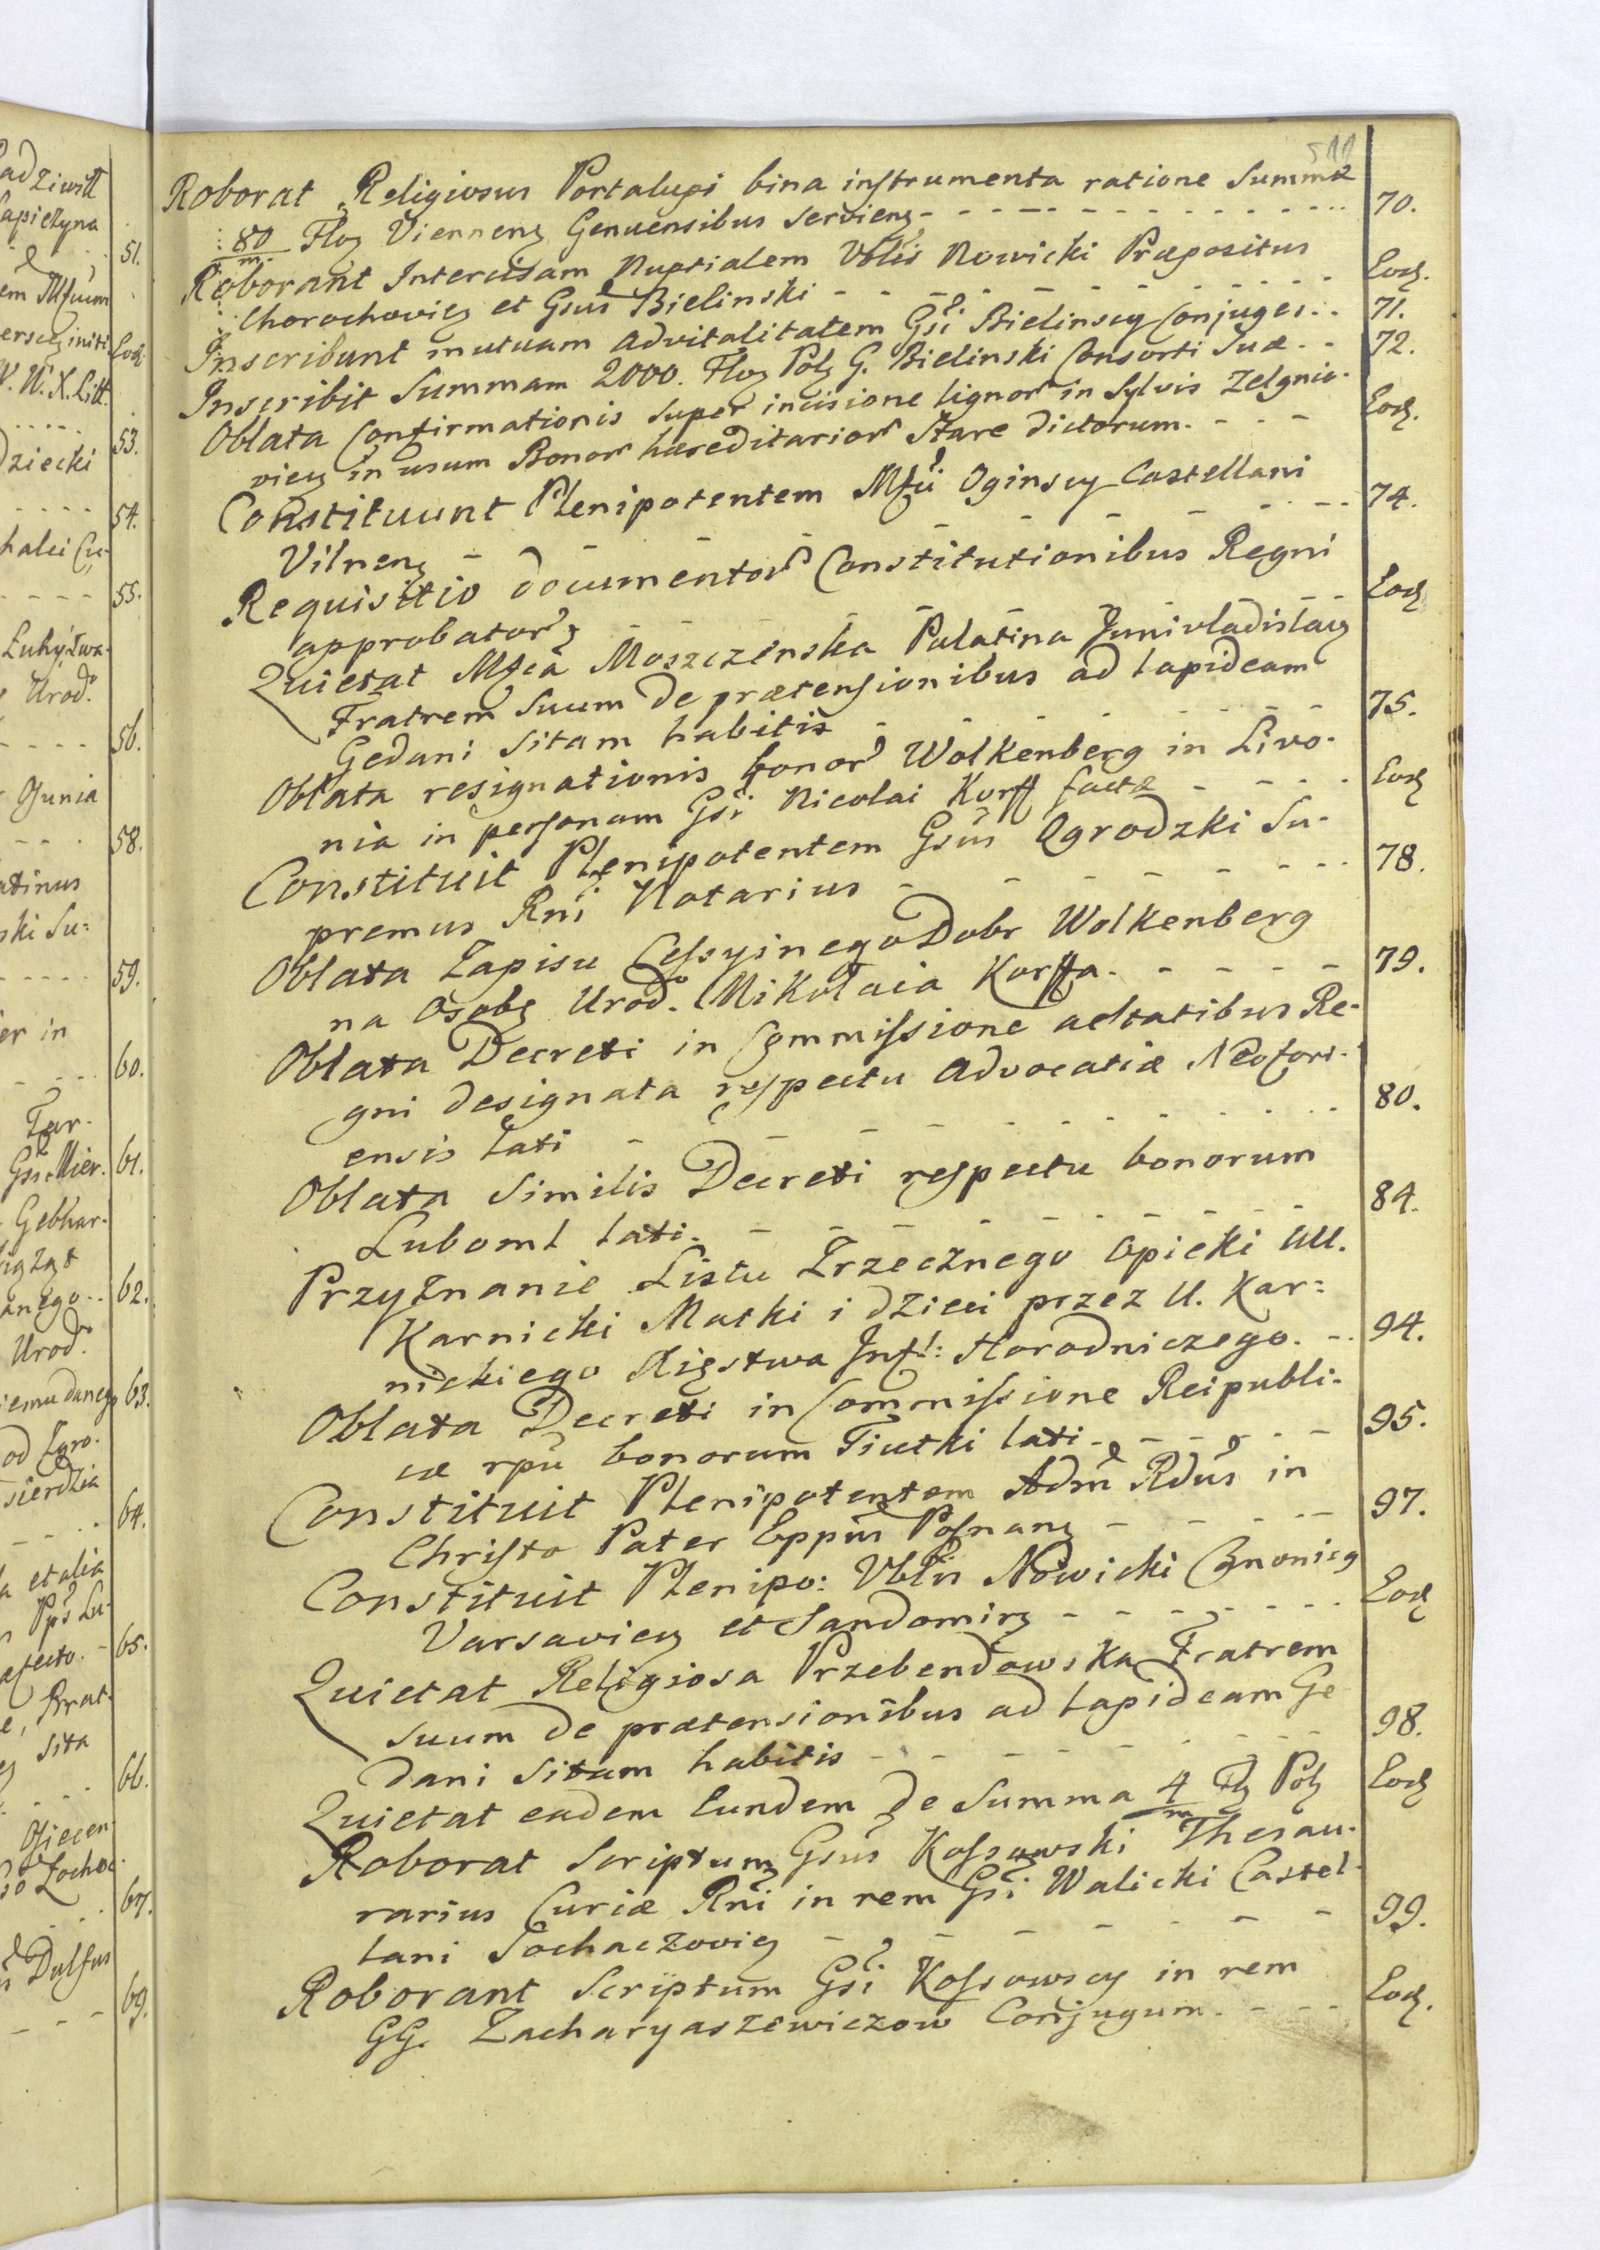 511
Roborat Religiosus Portalupi bina instrumenta ratione Summæ
80/m. Floz Viennenz Genuensibus servienz - - - 70.
Roborant Intercisam Nuptialem Vblis Nowicki Præpositus
Chorochoviez et Gsus Bielinski - - - Eodz.
Inscribunt mutuam advitalitatem Gsi Bielinscy Conjuges.. 71.
Inscribit Summam 2000. Floz Polz G. Bielinski Consorti Suæ - - 72.
Oblata Confirmationis super incisione lignor in Sylvis Zelgnio-
viez in usum Bonor hæreditarior Stare dictorum. - - - Eodz.
Constituunt Plenipotentem Mfci Oginscy Castellani
Vilnenz - - - 74.
Requisitio documentor Constitutionibus Regni
approbatorz - - - Eodz
Quietat Mfca Moszczenska Palatina Junivladislaviz
Fratrem Suum de prætensionibus ad lapideam
Gedani Sitam habitis - - - 75.
Oblata resignationis bonor Wolkenberg in Livo-
nia in personam Gsi Nicolai Korff factæ - - - Eodz
Constituit Plenipotentem Gsus Ogrodzki Su-
premus Rni Notarius - - - 78.
Oblata Zapisu Cessyinego Dobr Wolkenberg
na Osobę Urod. Mikołaia Korffa. - - - 79.
Oblata Decreti in Commissione aestatibus Re-
gni designata respectu Advocatiæ Neofori-
ensis lati - - - 80.
Oblata Similis Decreti respectu bonorum
Luboml lati. - - - 84.
Przyznanie Listu Zrzecznego Opieki UU.
Karnicki Matki i dzieci przez U. Kar=
nickiego Xięstwa Infl: Horodniczego. - - 94.
Oblata Decreti in Commissione Reipubli-
cæ rpu bonorum Tiutki lati - - - 95.
Constituit Plenipotentem Adm Rdus in
Christo Pater Eppus Posnanz - - - 97.
Constituit Plenipo: Vblis Nowicki Cznonicz
Varsaviez et Sandomirz - - - Eodz
Quietat Religiosa Przebendowska Fratrem
suum de prætensionibus ad lapideam Ge
dani Sitam habitis - - - 98.
Quietat eadem Eundem de Summa 4/m Flz Polz Eodz
Roborat Scriptum Gsus Kossowski Thesau-
rarius Curiæ Rni in rem Gsi Walicki Castel-
lani Sochaczoviez - - - 99.
Roborant Scriptum Gsi Kossowscy in rem
GG. Zacharyaszewiczow Conjugum. - - - Eodz.